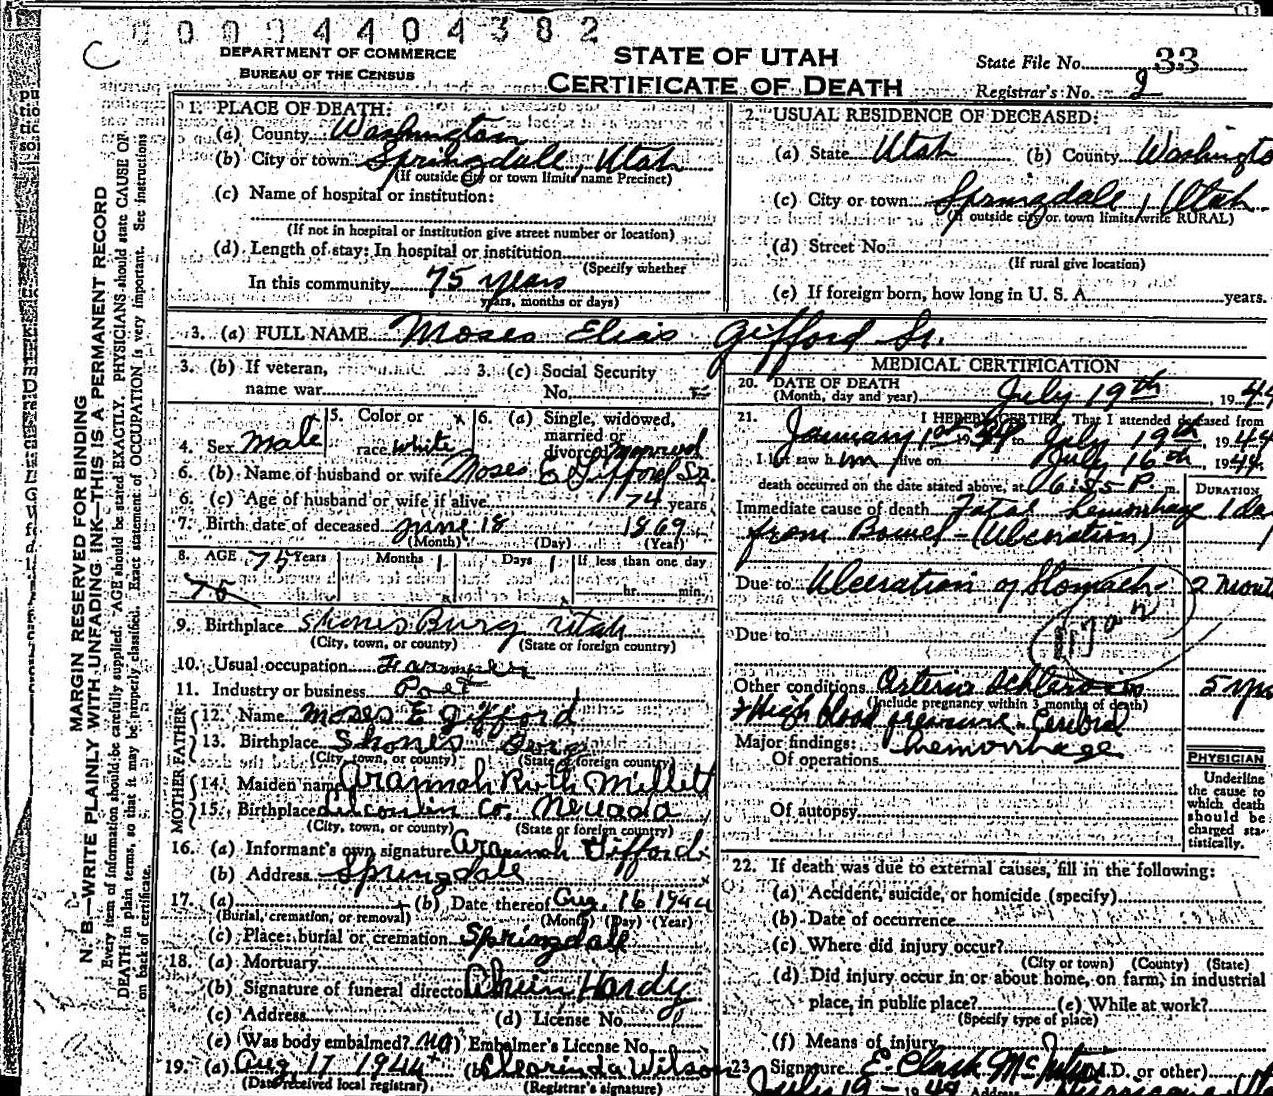 0 0 0 9 4 4 0 4 3 8 2
C
DEPARTMENT OF COMMERCE
BUREAU OF THE CENSUS
STATE OF UTAH
CERTIFICATE OF DEATH
State File No. 33
Registrar's No. 2
MARGIN RESERVED FOR BINDING
N. B.—WRITE PLAINLY WITH UNFADING INK—THIS IS A PERMANENT RECORD
Every item of information should be carefully supplied. AGE should be stated EXACTLY. PHYSICIANS should state CAUSE OF
DEATH in plain terms, so that it may be properly classified. Exact statement of OCCUPATION is very important. See instructions
on back of certificate.
1. PLACE OF DEATH:
(a) County Washington
(b) City or town Springdale, Utah
(If outside city or town limits name Precinct)
(c) Name of hospital or institution:
(If not in hospital or institution give street number or location)
(d) Length of stay: In hospital or institution
(Specify whether
In this community 75 years
years, months or days)
2. USUAL RESIDENCE OF DECEASED:
(a) State Utah (b) County Washingto
(c) City or town Springdale, Utah
(If outside city or town limits write RURAL)
(d) Street No.
(If rural give location)
(e) If foreign born, how long in U. S. A. years.
3. (a) FULL NAME Moses Elias Gifford Sr.
3. (b) If veteran,
name war
3. (c) Social Security
No.
4. Sex Male
5. Color or
race white
6. (a) Single, widowed,
married or
divorced Married
6. (b) Name of husband or wife Moses E Gifford Sr.
6. (c) Age of husband or wife if alive 74 years
7. Birth date of deceased June 18 1869
(Month) (Day) (Year)
8. AGE 75 Years Months 1 Days 1 If less than one day
hr. min.
75
9. Birthplace Shones Burg Utah
(City, town, or county) (State or foreign country)
10. Usual occupation Farmer
11. Industry or business Poet
FATHER
12. Name Moses E Gifford
13. Birthplace Shones Burg
(City, town, or county) (State or foreign country)
MOTHER
14. Maiden name Arannah Ruth Millett
15. Birthplace Lincoln Co. Nevada
(City, town, or county) (State or foreign country)
16. (a) Informant's own signature Arannah Gifford
(b) Address Springdale
17. (a) (b) Date thereof Aug. 16 1944
(Burial, cremation, or removal) (Month) (Day) (Year)
(c) Place: burial or cremation Springdale
18. (a) Mortuary
(b) Signature of funeral director Hardy
(c) Address (d) License No.
(e) Was body embalmed? No Embalmer's License No.
19. (a) Aug. 17 1944 (b) Clearinda Wilson
(Date received local registrar) (Registrar's signature)
MEDICAL CERTIFICATION
20. DATE OF DEATH
(Month, day and year) July 19th, 1944
21. I HEREBY CERTIFY, That I attended deceased from
January 1st 1934 to July 19th, 1944
I last saw him alive on July 16th, 1944
death occurred on the date stated above, at 6:55 P. m.
DURATION
Immediate cause of death Fatal hemorrhage 1 da
from Bowel - (Ulceration)
Due to Ulceration of Stomach 2 mont
117a
Due to
Other conditions Arterio Schlerosis 5 yrs
(Include pregnancy within 3 months of death)
& High blood pressure - Cerebral
Major findings: hemorrhage
Of operations
Of autopsy
PHYSICIAN
Underline
the cause to
which death
should be
charged sta-
tistically.
22. If death was due to external causes, fill in the following:
(a) Accident, suicide, or homicide (specify)
(b) Date of occurrence
(c) Where did injury occur?
(City or town) (County) (State)
(d) Did injury occur in or about home, on farm, in industrial
place, in public place? (e) While at work?
(Specify type of place)
(f) Means of injury
23. Signature E. Clark McIntire (M.D. or other)
July 19 - 1944 Address